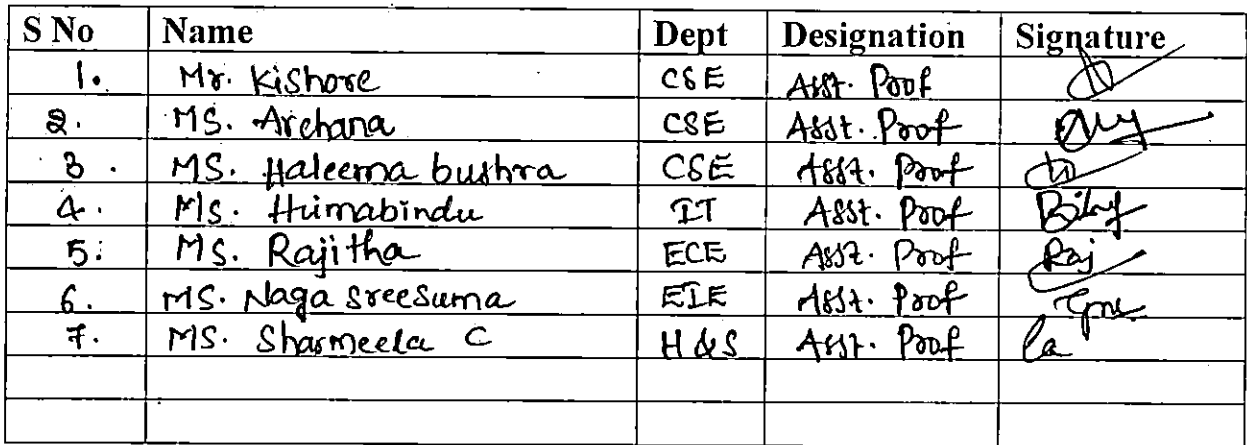 S No Name Dept Designation Signature
1. Mr. Kishore CSE Asst. Prof
2. MS. Archana CSE Asst. Prof
3. MS. Haleema bushra CSE Asst. Prof
4. Ms. Himabindu IT Asst. Prof
5. MS. Rajitha ECE Asst. Prof Raj
6. MS. Naga Sreesuma EIE Asst. Prof
7. MS. Sharmeela C H&S Asst. Prof